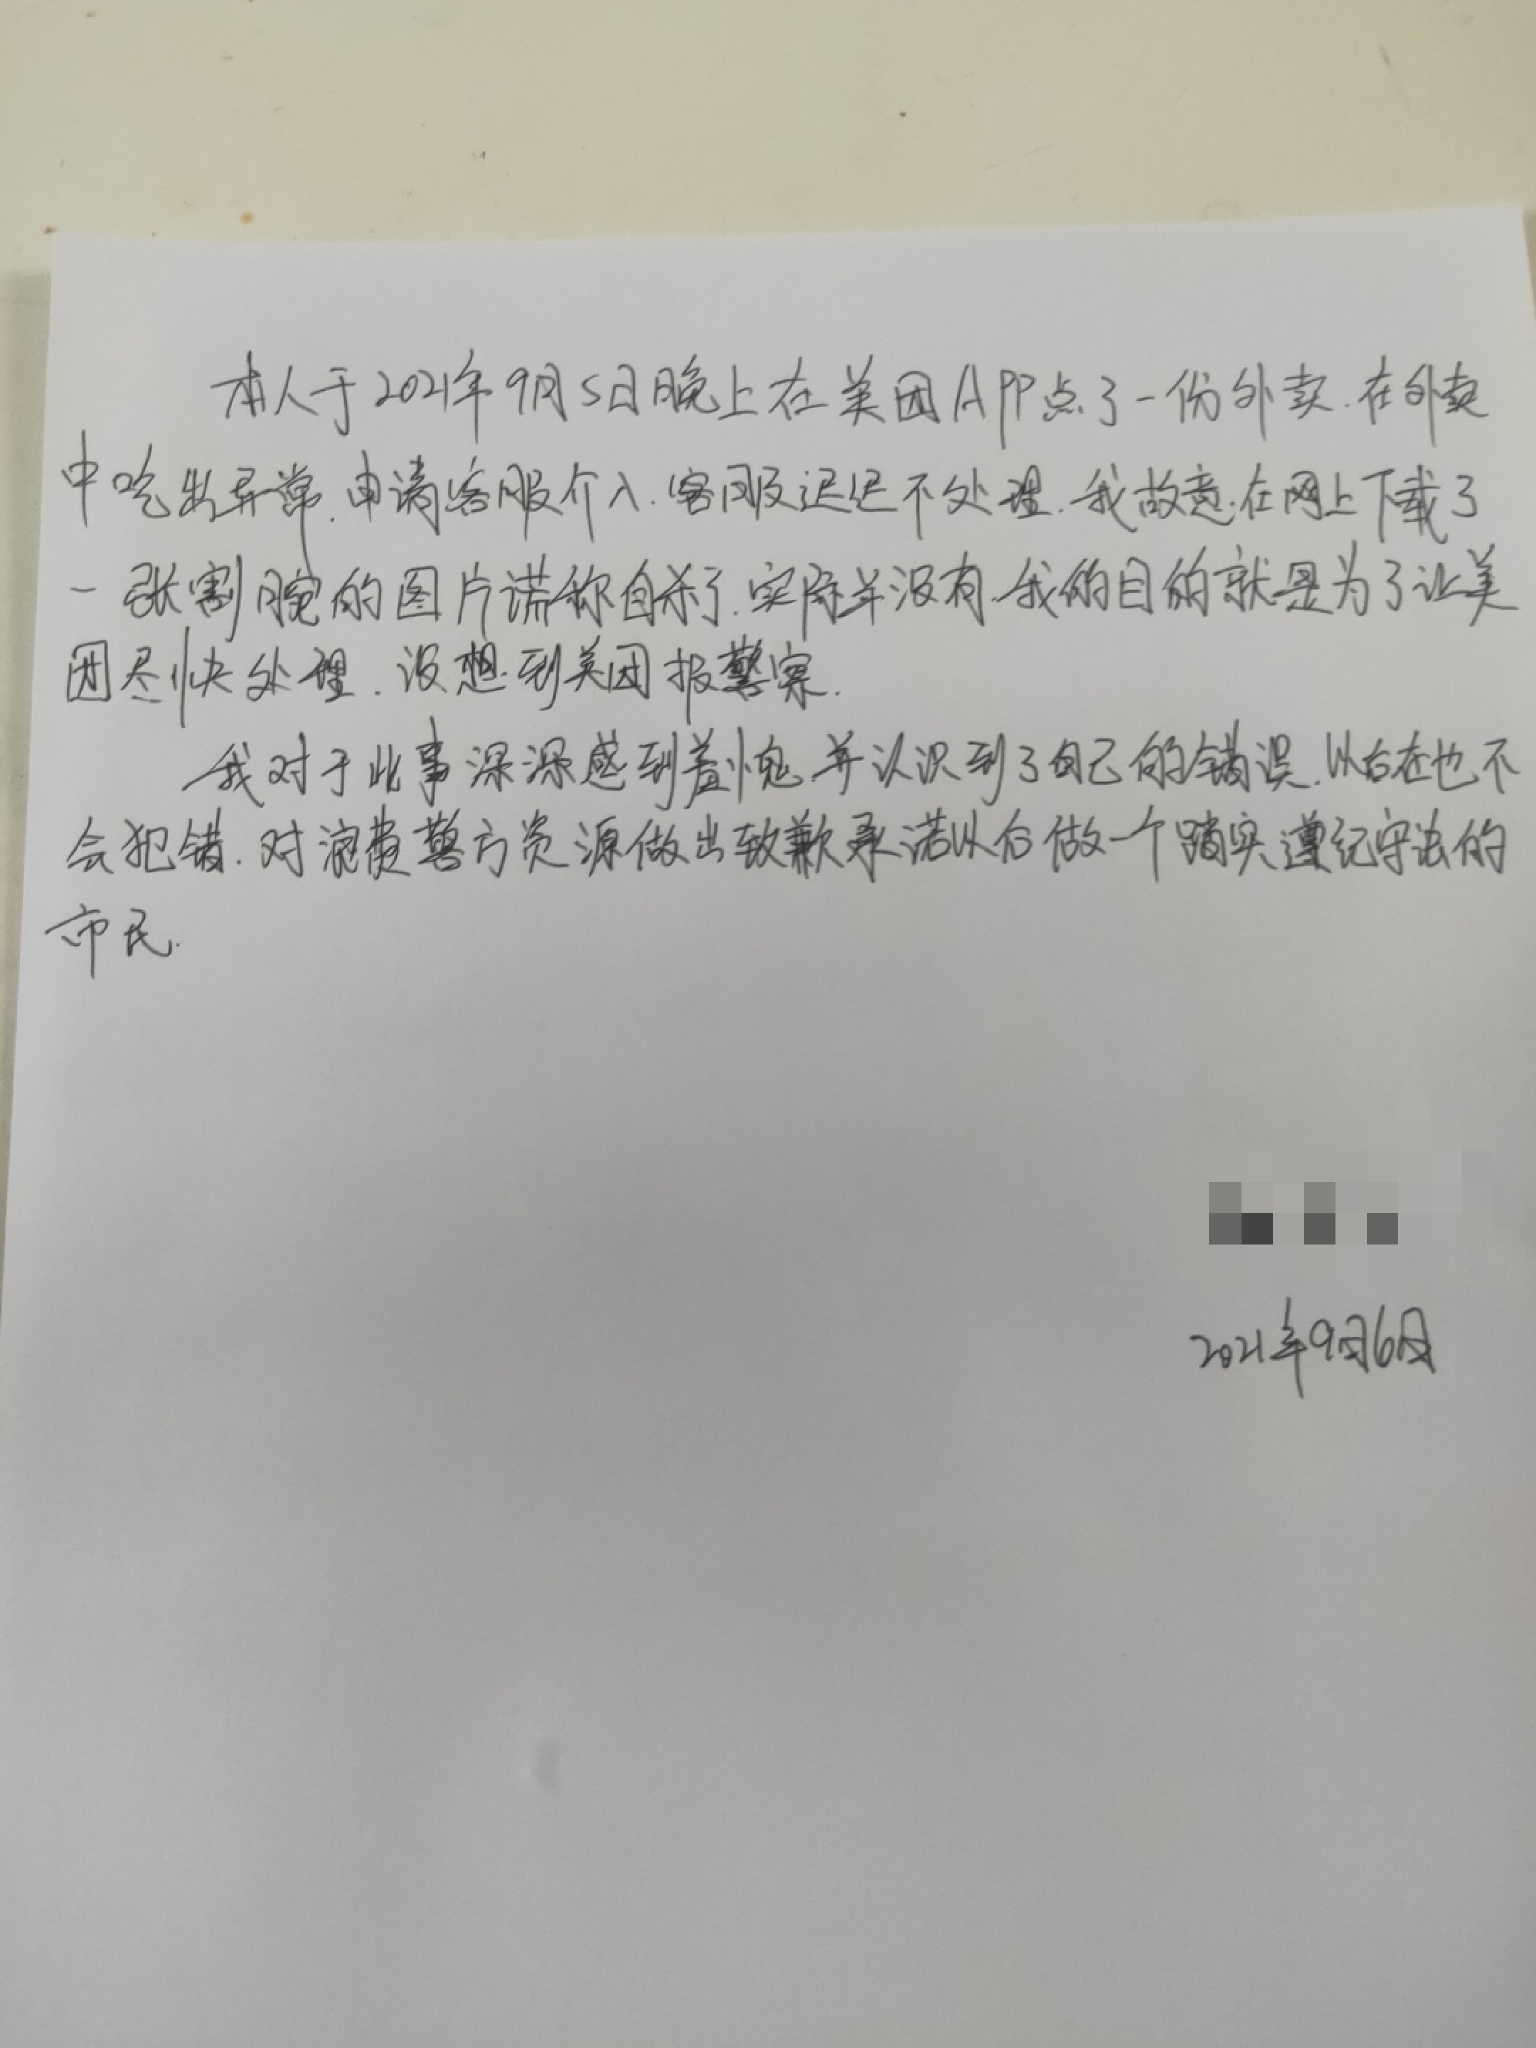 本人于2021年9月5日晚上在美团APP点了一份外卖.在外卖
中吃出异常.申请客服介入.客服迟迟不处理.我故意在网上下载了
一张割腕的图片谎称自杀了.实际并没有.我的目的就是为了让美
团尽快处理.没想到美团报警案.
我对于此事深深感到羞愧.并认识到了自己的错误.以后在也不
会犯错.对浪费警方资源做出致歉承诺以后做一个踏实遵纪守法的
市民.
2021年9月6日